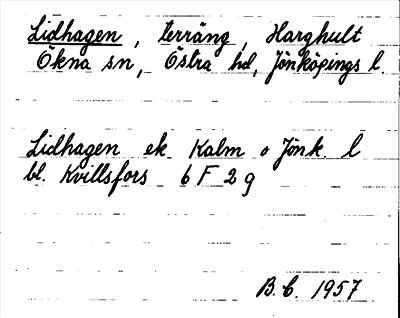 Lidhagen, terräng, Harghult
Ökna sn, Östra hd, Jönköpings l.
Lidhagen ek Kalm o Jönk. l
bl. Kvillsfors 6 F 2 g
B. C. 1957